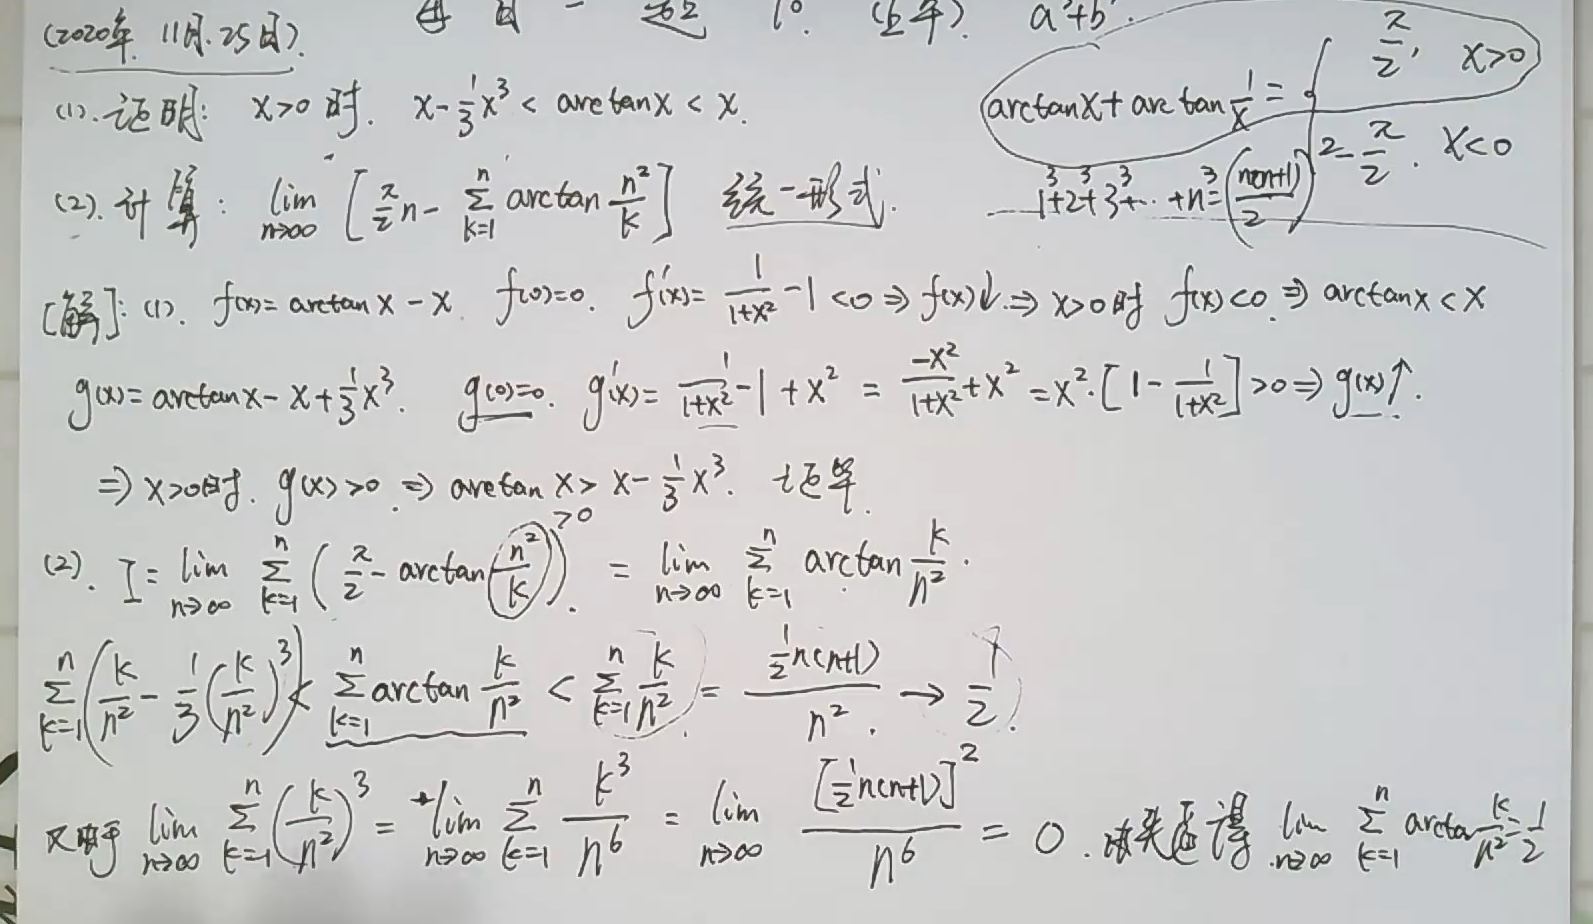 (2020年 11月.25日). 每日一题 1°. (上午). a³+b
(1).证明: x>0时. x-1/3x³ < arctanx < x.
arctanx + arctan 1/x = { π/2, x>0
-π/2. x<0
(2).计算: lim n→∞ [π/2 n - Σ k=1 n arctan n²/k] 统一形式.
1³+2³+3³+…+n³=(n(n+1)/2)²
[解]: (1). f(x)=arctanx-x. f(0)=0. f'(x)=1/(1+x²)-1<0 ⇒ f(x)↓.⇒ x>0时 f(x)<0.⇒ arctanx<x
g(x)=arctanx-x+1/3x³. g(0)=0. g'(x)=1/(1+x²)-1+x² = -x²/(1+x²)+x² = x²·[1-1/(1+x²)]>0⇒ g(x)↑.
⇒ x>0时. g(x)>0.⇒ arctanx> x-1/3x³. 证毕.
(2). I= lim n→∞ Σ k=1 n (π/2 - arctan(n²/k))>0. = lim n→∞ Σ k=1 n arctan k/n².
Σ k=1 n (k/n² - 1/3(k/n²)³) < Σ k=1 n arctan k/n² < Σ k=1 n k/n² = 1/2n(n+1)/n². → 1/2.
又由于 lim n→∞ Σ k=1 n (k/n²)³ = lim n→∞ Σ k=1 n k³/n⁶ = lim n→∞ [1/2n(n+1)]²/n⁶ = 0. 故夹逼得 lim n→∞ Σ k=1 n arctan k/n²=1/2